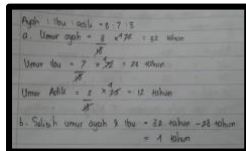 Ayah : Ibu : adik = 8 : 7 : 3
a. Umur ayah = 8/18 × 72 = 32 tahun
Umur Ibu = 7/18 × 72 = 28 tahun
Umur Adik = 3/18 × 72 = 12 tahun
b. Selisih umur ayah & Ibu = 32 tahun - 28 tahun
= 4 tahun